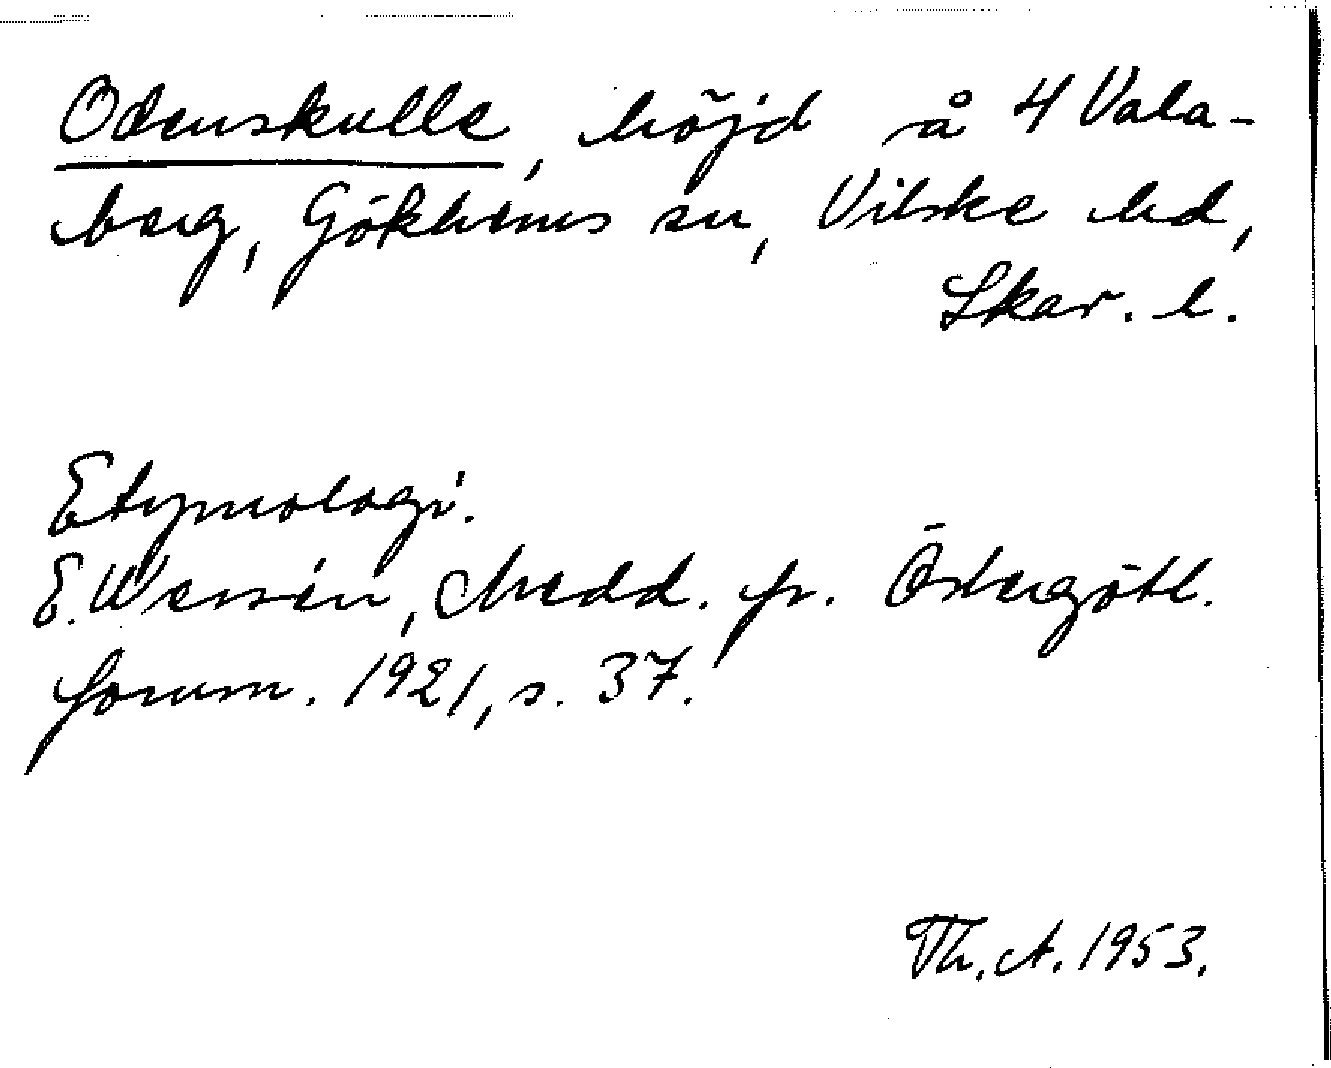 Odenskulle, höjd å 4 Vala-
berg, Gökhems sn, Vilske hd,
Skar. l.
Etymologi.
E. Wessén, Medd. fr. Östergötl.
fornm. 1921, s. 37.
Th. A. 1953.